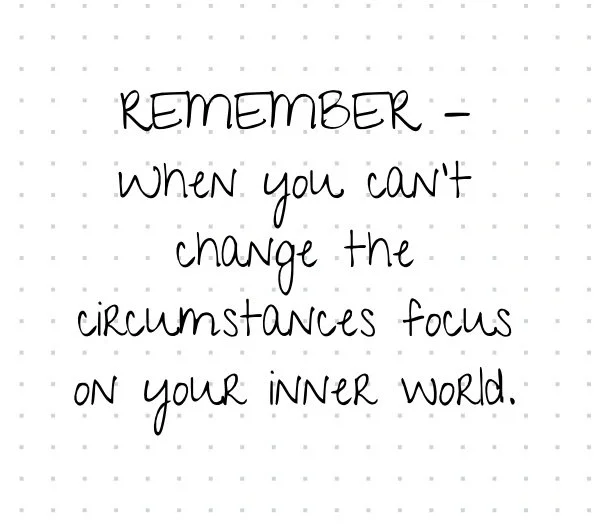 REMEMBER -
when you can't
change the
circumstances focus
on your inner world.